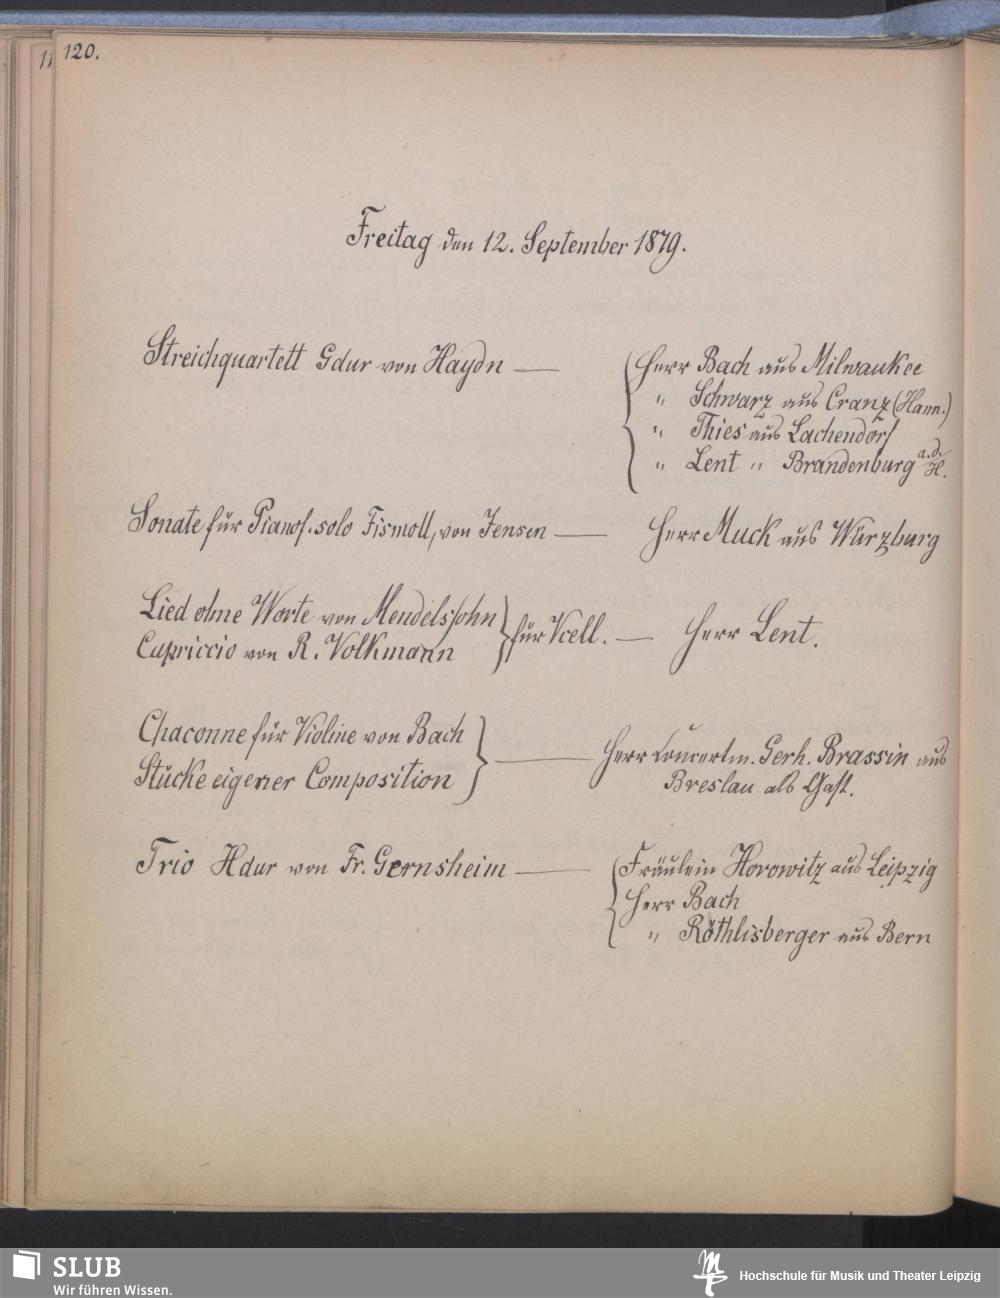 120.
Freitag den 12. September 1879.
Streichquartett Gdur von Haydn — Herr Bach aus Milwaukee
" Schwarz aus Cranz (Hann.)
" Thies aus Lachendorf
" Lent " Brandenburg a.d. H.
Sonate für Pianof. solo Fismoll, von Jensen — Herr Muck aus Würzburg
Lied ohne Worte von Mendelssohn
Capriccio von R. Volkmann
für Vcell. — Herr Lent.
Chaconne für Violine von Bach
Stücke eigener Composition
— Herr Concertm. Gerh. Brassin aus
Breslau als Gast.
Trio Hdur von Fr. Gernsheim — Fräulein Horowitz aus Leipzig
Herr Bach
" Röthlisberger aus Bern
SLUB
Wir führen Wissen.
Hochschule für Musik und Theater Leipzig